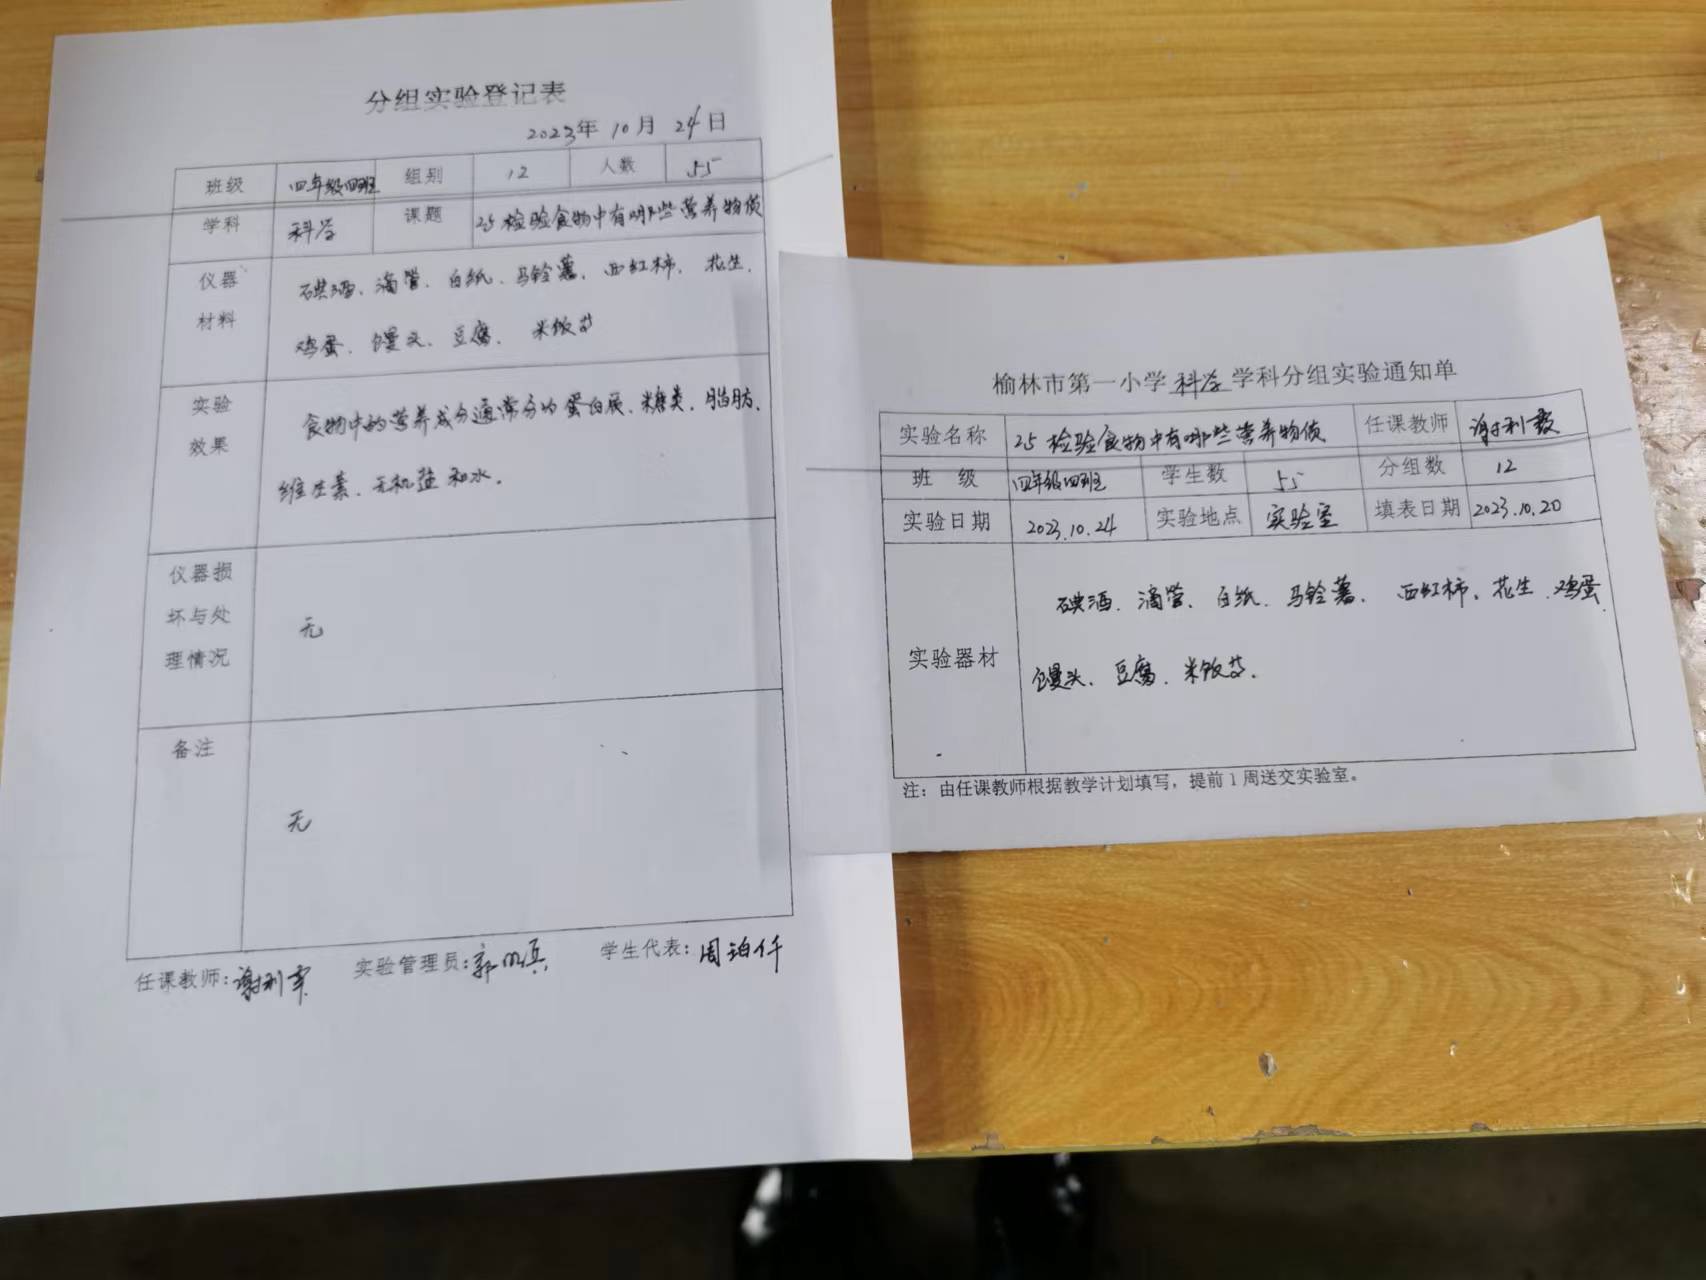 分组实验登记表
2023年 10月 24日
班级 四年级四班 组别 12 人数 55
学科 科学 课题 25 检验食物中有哪些营养物质
仪器 碘酒、滴管、白纸、马铃薯、西红柿、花生、
材料 鸡蛋、馒头、豆腐、米饭等
实验 食物中的营养成分通常分为蛋白质、糖类、脂肪、
效果 维生素、无机盐和水。
仪器损
坏与处 无
理情况
备注
无
任课教师:谢利 实验管理员:郭 学生代表:周珀仟
榆林市第一小学 科学 学科分组实验通知单
实验名称 25 检验食物中有哪些营养物质 任课教师 谢利
班 级 四年级四班 学生数 55 分组数 12
实验日期 2023.10.24 实验地点 实验室 填表日期 2023.10.20
碘酒、滴管、白纸、马铃薯、西红柿、花生、鸡蛋
实验器材 馒头、豆腐、米饭等.
注：由任课教师根据教学计划填写，提前1周送交实验室。